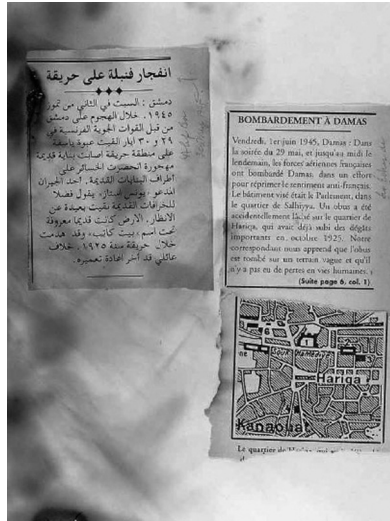 انفجار قنبلة على حريقة
دمشق : السبت في الثاني من تموز
١٩٤٥. خلال الهجوم على دمشق
من قبل القوات الجوية الفرنسية في
٢٩ و ٣٠ ايار القيت عبوة ناسفة
على منطقة حريقة اصابت بناية قديمة
مهجورة انحصرت الخسائر على
اطراف البنايات القديمة. احد الجيران
المدعو يونس امتناز، يقول فضلا
للخرافات القديمة بقيت بعيدة عن
الانظار. الارض كانت قديما معروفة
تحت اسم بيت كاتب، وقد هدمت
خلال حريقة سنة ١٩٢٥. خلاف
عائلي قد أخر اعادة تعميره.
BOMBARDEMENT À DAMAS
Vendredi, 1er juin 1945, Damas : Dans
la soirée du 29 mai, et jusqu'au midi le
lendemain, les forces aériennes françaises
ont bombardé Damas, dans un effort
pour réprimer le sentiment anti-français.
Le bâtiment visé était le Parlement, dans
le quartier de Salhiya. Un obus a été
accidentellement lâché sur le quartier de
Hariqa, qui avait déjà subi des dégâts
importants en octobre 1925. Notre
correspondant nous apprend que l'obus
est tombé sur un terrain vague et qu'il
n'y a pas eu de pertes en vies humaines.
(Suite page 6, col. 1)
Hariqa
Kanaouat
Le quartier de Hariqa, qui